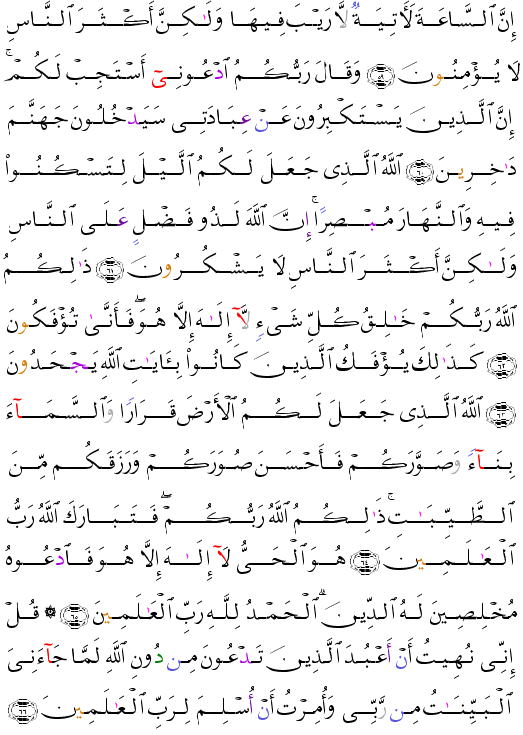 إِنَّ ٱلسَّاعَةَ لَأَتِيَةٌ لَّا رَيْبَ فِيهَا وَلَـٰكِنَّ أَكْثَرَ ٱلنَّاسِ
لَا يُؤْمِنُونَ ۝٥٩ وَقَالَ رَبُّكُمُ ٱدْعُونِىٓ أَسْتَجِبْ لَكُمْ ۚ
إِنَّ ٱلَّذِينَ يَسْتَكْبِرُونَ عَنْ عِبَادَتِى سَيَدْخُلُونَ جَهَنَّمَ
دَاخِرِينَ ۝٦٠ ٱللَّهُ ٱلَّذِى جَعَلَ لَكُمُ ٱلَّيْلَ لِتَسْكُنُوا۟
فِيهِ وَٱلنَّهَارَ مُبْصِرًا ۚ إِنَّ ٱللَّهَ لَذُو فَضْلٍ عَلَى ٱلنَّاسِ
وَلَـٰكِنَّ أَكْثَرَ ٱلنَّاسِ لَا يَشْكُرُونَ ۝٦١ ذَٰلِكُمُ
ٱللَّهُ رَبُّكُمْ خَـٰلِقُ كُلِّ شَىْءٍ لَّآ إِلَـٰهَ إِلَّا هُوَ ۖ فَأَنَّىٰ تُؤْفَكُونَ
۝٦٢ كَذَٰلِكَ يُؤْفَكُ ٱلَّذِينَ كَانُوا۟ بِـَٔايَـٰتِ ٱللَّهِ يَجْحَدُونَ
۝٦٣ ٱللَّهُ ٱلَّذِى جَعَلَ لَكُمُ ٱلْأَرْضَ قَرَارًا وَٱلسَّمَآءَ
بِنَآءً وَصَوَّرَكُمْ فَأَحْسَنَ صُوَرَكُمْ وَرَزَقَكُم مِّنَ
ٱلطَّيِّبَـٰتِ ۚ ذَٰلِكُمُ ٱللَّهُ رَبُّكُمْ ۖ فَتَبَارَكَ ٱللَّهُ رَبُّ
ٱلْعَـٰلَمِينَ ۝٦٤ هُوَ ٱلْحَىُّ لَآ إِلَـٰهَ إِلَّا هُوَ فَٱدْعُوهُ
مُخْلِصِينَ لَهُ ٱلدِّينَ ۗ ٱلْحَمْدُ لِلَّهِ رَبِّ ٱلْعَـٰلَمِينَ ۝٦٥ ۞ قُلْ
إِنِّى نُهِيتُ أَنْ أَعْبُدَ ٱلَّذِينَ تَدْعُونَ مِن دُونِ ٱللَّهِ لَمَّا جَآءَنِىَ
ٱلْبَيِّنَـٰتُ مِن رَّبِّى وَأُمِرْتُ أَنْ أُسْلِمَ لِرَبِّ ٱلْعَـٰلَمِينَ ۝٦٦